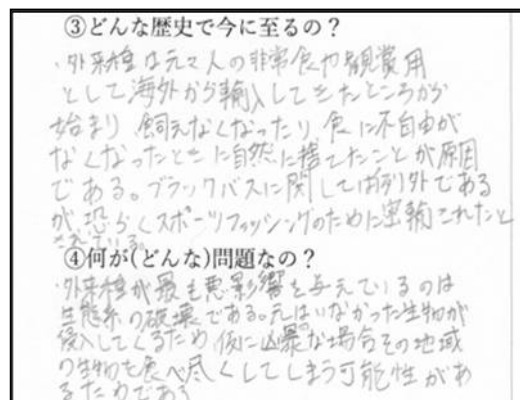 ③どんな歴史で今に至るの？
・外来種は元々人の非常食や観賞用
として海外から輸入してきたところから
始まり飼えなくなったり食に不自由が
なくなったときに自然に捨てたことが原因
である。ブラックバスに関しては例外である
が、恐らくスポーツフィッシングのために密輸されたと
されている。
④何が(どんな)問題なの？
・外来種が最も悪影響を与えているのは
生態系の破壊である。元はいなかった生物が
侵入してくるため仮に凶暴な場合その地域
の生物を食べ尽くしてしまう可能性があ
るためである